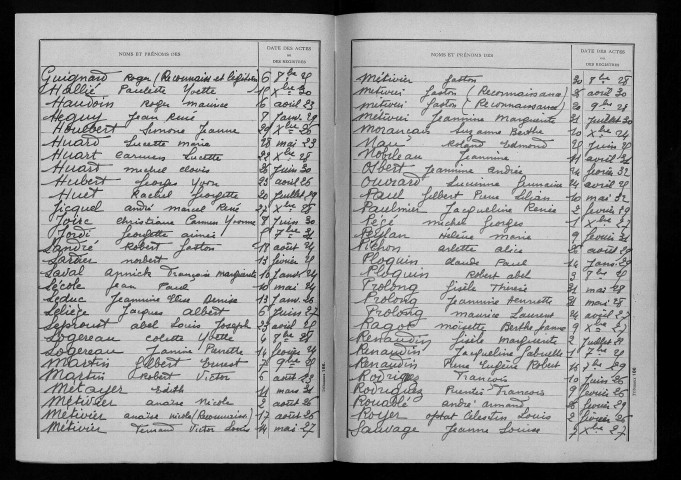 NOMS ET PRÉNOMS DES
DATE DES ACTES
OU
DES REGISTRES
Guignard Roger (Reconnais et légitim) 6 8bre 25
Hallié Paulette Yvette 10 Xbre 30
Haudoin Roger Maurice 6 août 23
Heguy Jean René 7 Janv. 29
Houlbert Simone Jeanne 29 Xbre 26
Huard Lucette Marie 28 mai 23
Huart Carmen Lucette 22 Xbre 28
Huart Michel Clovis 26 Juin 30
Hubert Georges Yvon 23 août 26
Huet Rachel Georgette 20 Juillet 29
Jicquel André Marcel René Xbre 25
Joire Christiane Carmen Yvonne 8 Juin 30
Jordi Georgette Aimée 7bre
Landré Robert Gaston 18 août 24
Lartier Norbert 13 février 25
Laval Annick Françoise Marguerite 10 Janv 24
Lécole Jean Paul 10 mai 24
Leduc Jeannine Denise 13 Janv. 26
Leliège Jacques Albert 6 Juin 27
Leproust Abel Louis Joseph 23 août 25
Logereau Colette Yvette 4 7bre 26
Logereau Janine Paulette 14 février 24
Martin Gilbert Ernest 7 9bre 25
Martin Robert Victor 6 août 23
Métayer Edith 14 mars 26
Métivier Anaïse Nicole 2 août 26
Métivier Anaïse Nicole (Reconnaiss) 17 août 26
Métivier Fernand Victor Louis 14 mai 27
NOMS ET PRÉNOMS DES
DATE DES ACTES
OU
DES REGISTRES
Métivier Gaston 20 8bre 28
Métivier Gaston (Reconnaissance) 25 août 30
Métivier Gaston (Reconnaissance) 20 9bre 28
Métivier Jeannine Marguerite 21 Juillet 30
Morançais Suzanne Berthe Xbre 24
Roland Edmond 28 Juin 25
Nobileau Jeannine 11 avril 26
Osbert Jeannine André 24 février 32
Ouvrard Lucienne Germaine 24 avril 25
Paul Gilbert Pierre Lilian 10 mai 32
Paulmier Jacqueline Renée 2 février 29
Pégé Michel Georges 1 Xbre 27
Peslan Hélène Marie 9 février 26
Pichon Arlette Alice août 29
Ploquin Claude Paul 14 Janv. 25
Ploquin Robert Abel 3 7bre 25
Prolong Gisèle Thérèse 21 mai 28
Prolong Jeannine Henriette 21 mai 28
Prolong Maurice Laurent 24 avril 27
Ragot Moïsette Berthe Jeanne 9 Xbre 27
Renaudin Gisèle Marguerite 2 Juillet 31
Renaudin Jacqueline Gabrielle 1 7bre 29
Renaudin René Eugène Robert 15 7bre 29
Rodriguez Francois 10 Juin 26
Rodriguez Francois 9 février 26
Rouallé André Armand 26 février 29
Royer Célestin Louis 2 février 26
Sauvage Jeanne Louise 5 Xbre 27